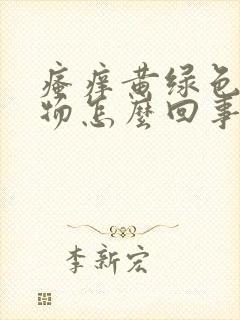 瘙痒黄绿色
物怎麽回事
李新宏